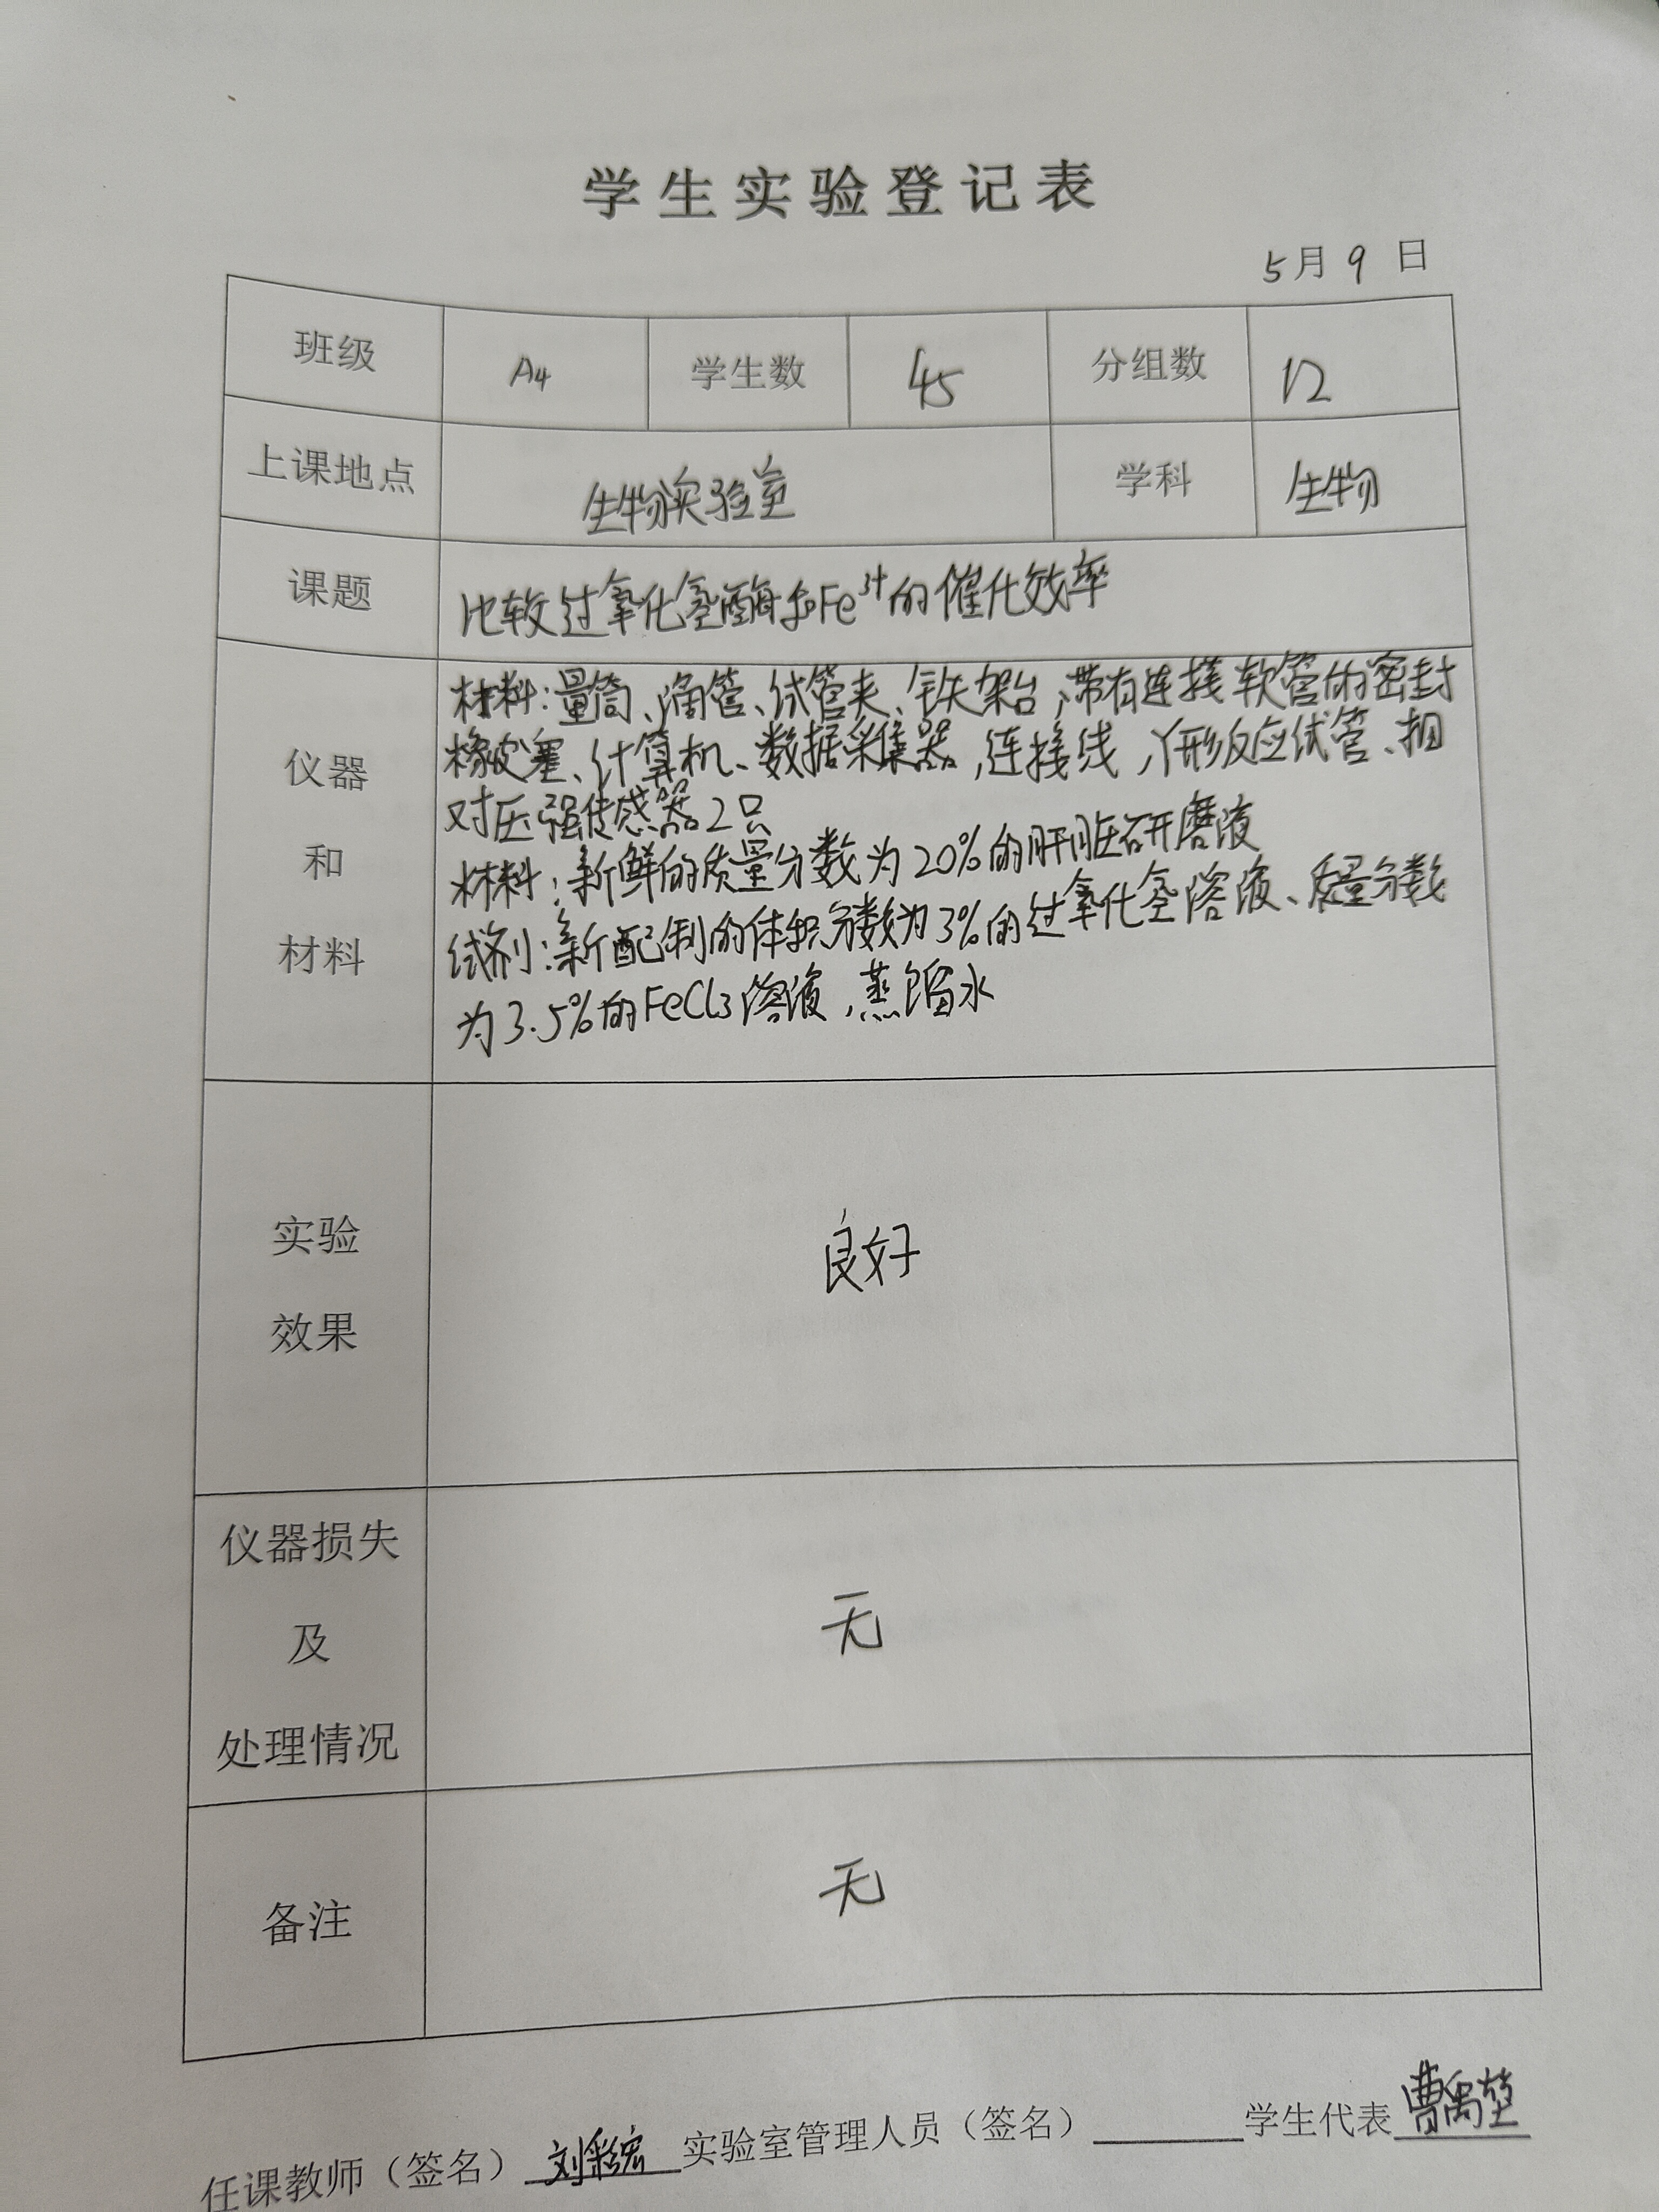 学生实验登记表
5月9日
班级 A4 学生数 45 分组数 12
上课地点 生物实验室 学科 生物
课题 比较过氧化氢酶和Fe³⁺的催化效率
仪器
和
材料
材料:量筒、滴管、试管夹、铁架台,带有连接软管的密封
橡皮塞、计算机、数据采集器,连接线,Y形反应试管、相
对压强传感器2只
材料:新鲜的质量分数为20%的肝脏研磨液
试剂:新配制的体积分数为3%的过氧化氢溶液、质量分数
为3.5%的FeCl3溶液,蒸馏水
实验
效果
良好
仪器损失
及
处理情况
无
备注
无
任课教师(签名) 实验室管理人员(签名) 学生代表